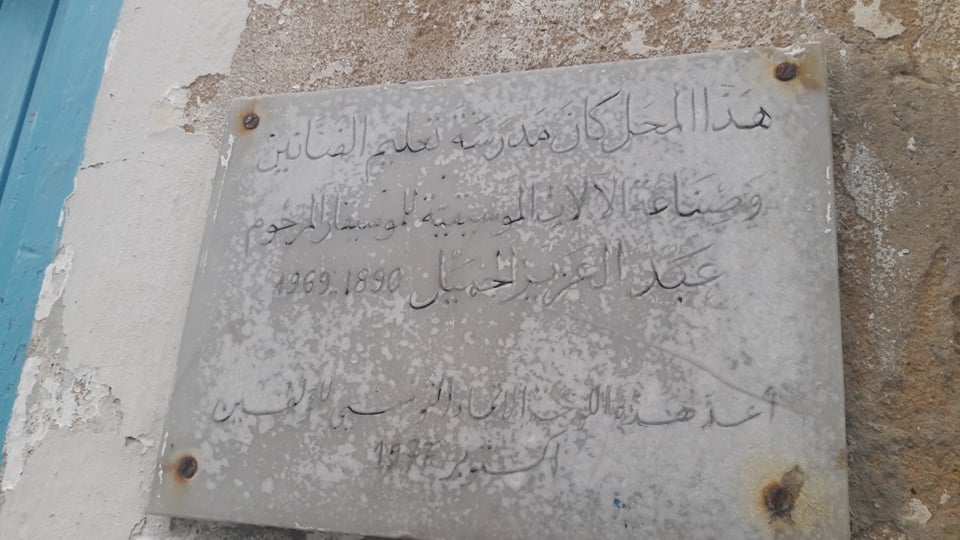 هَذَا المَحَل كَانَ مَدرَسَة تَعليم الفنَّانين
وَصِنَاعَة الآلات المُوسيقيّة للمُوسيقار المرحوم
عَبد العَزيز الجميّل 1890 ـ 1969
أعدّ هَذه اللوحَة الاتحاد التونسي للمؤلفين
اكتوبر 1977